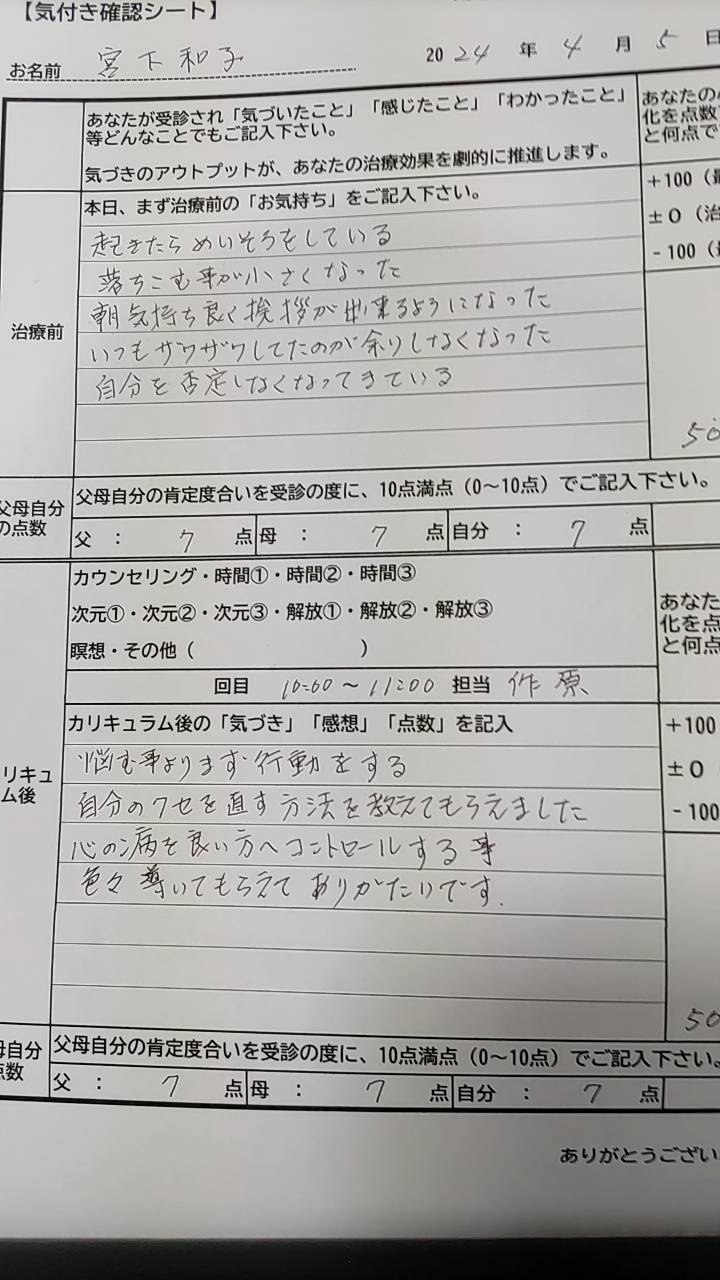 【気付き確認シート】
お名前 宮下和子 2024年4月5日
あなたが受診され「気づいたこと」「感じたこと」「わかったこと」
等どんなことでもご記入下さい。
気づきのアウトプットが、あなたの治療効果を劇的に推進します。
あなたの
化を点数
と何点で
治療前
本日、まず治療前の「お気持ち」をご記入下さい。
起きたらめいそうをしている
落ちこむ事が小さくなった
朝気持ち良く挨拶が出来るようになった
いつもザワザワしてたのが余りしなくなった
自分を否定しなくなってきている
+100（
±0（治
-100（
50
父母自分
の点数
父母自分の肯定度合いを受診の度に、10点満点（0～10点）でご記入下さい。
父 ： 7 点 母 ： 7 点 自分 ： 7 点
カウンセリング・時間①・時間②・時間③
次元①・次元②・次元③・解放①・解放②・解放③
瞑想・その他（ ）
あなた
化を点
と何点
回目 10:00～11:00 担当 作原
リキュ
ム後
カリキュラム後の「気づき」「感想」「点数」を記入
悩む事よりまず行動をする
自分のクセを直す方法を教えてもらえました
心の病を良い方へコントロールする事
色々導いてもらえてありがたいです.
+100
±0
-100
50
母自分
点数
父母自分の肯定度合いを受診の度に、10点満点（0～10点）でご記入下さい。
父 ： 7 点 母 ： 7 点 自分 ： 7 点
ありがとうござい